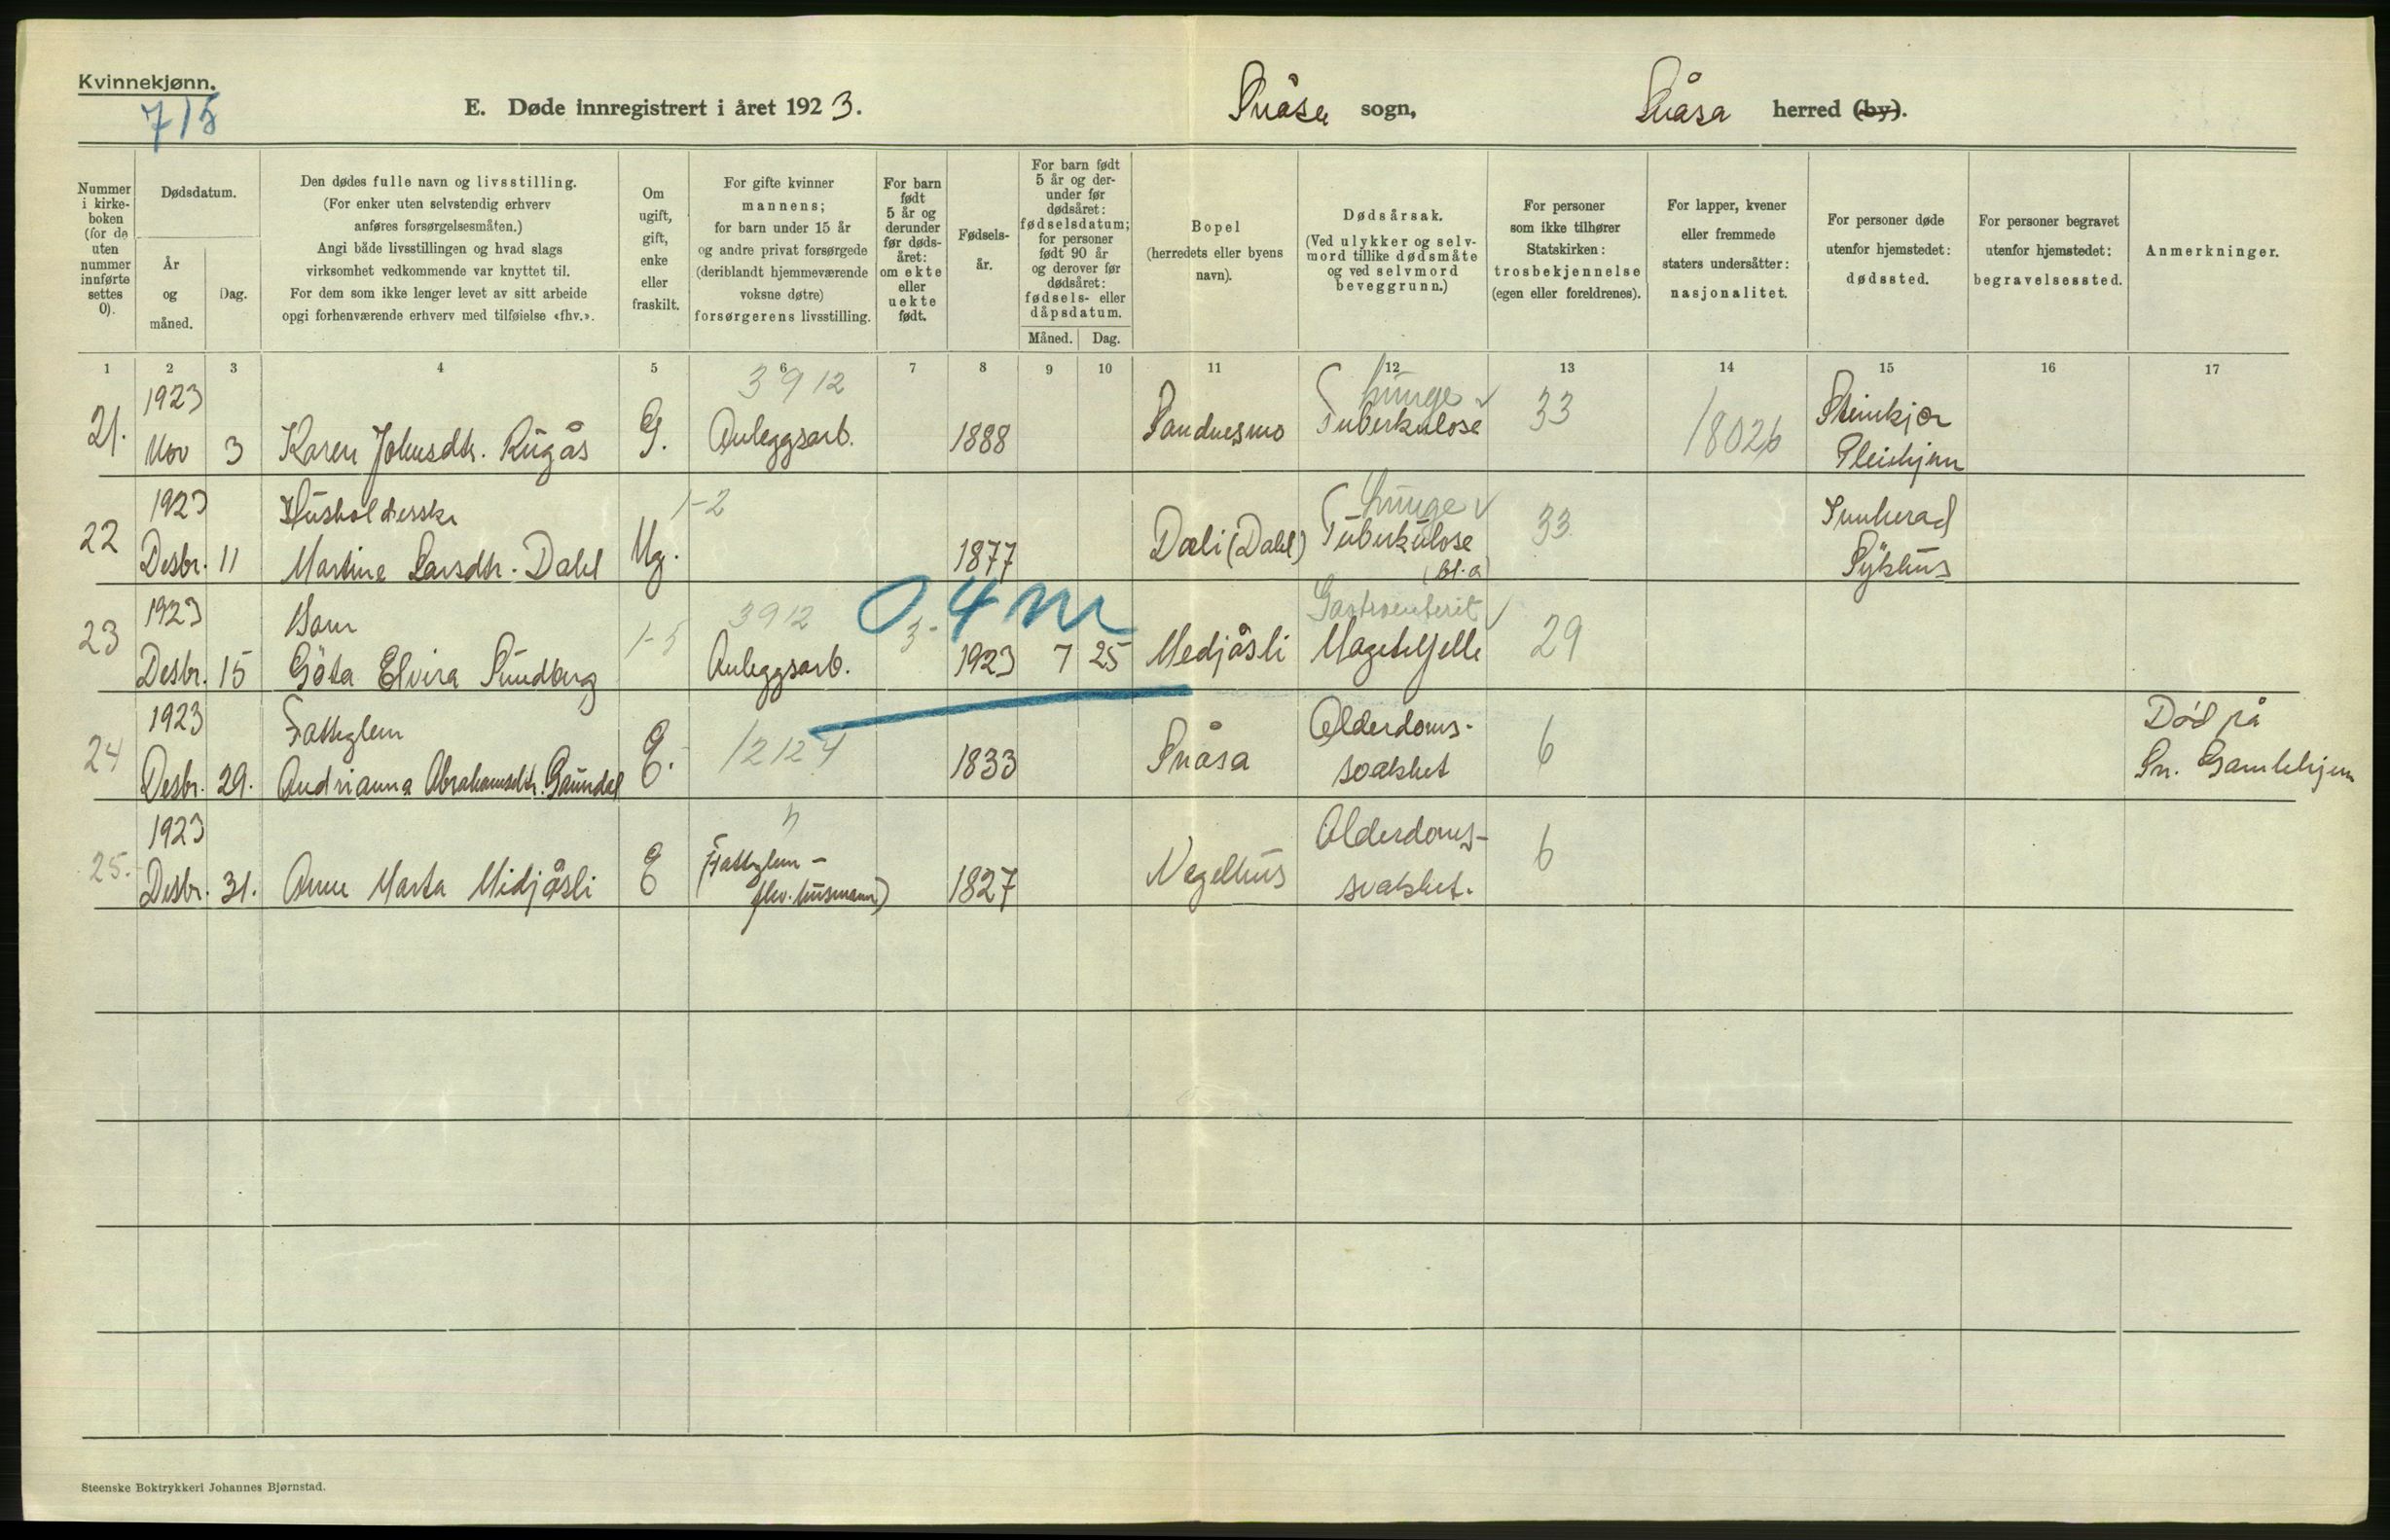 Kvinnekjønn.
715
E. Døde innregistrert i året 1923.
Snåsa sogn,
Snåsa herred (by).
Nummer
i kirke-
boken
(for de
uten
nummer
innførte
settes
0).
Dødsdatum.
År
og
måned.
Dag.
Den dødes fulle navn og livsstilling.
(For enker uten selvstendig erhverv
anføres forsørgelsesmåten.)
Angi både livsstillingen og hvad slags
virksomhet vedkommende var knyttet til.
For dem som ikke lenger levet av sitt arbeide
opgi forhenværende erhverv med tilføielse «fhv.».
Om
ugift,
gift,
enke
eller
fraskilt.
For gifte kvinner
mannens;
for barn under 15 år
og andre privat forsørgede
(deriblandt hjemmeværende
voksne døtre)
forsørgerens livsstilling.
For barn
født
5 år og
derunder
før døds-
året:
om ekte
eller
uekte
født.
Fødsels-
år.
For barn født
5 år og der-
under før
dødsåret:
fødselsdatum;
for personer
født 90 år
og derover før
dødsåret:
fødsels- eller
dåpsdatum.
Måned. Dag.
Bopel
(herredets eller byens
navn).
Dødsårsak.
(Ved ulykker og selv-
mord tillike dødsmåte
og ved selvmord
beveggrunn.)
For personer
som ikke tilhører
Statskirken:
trosbekjennelse
(egen eller foreldrenes).
For lapper, kvener
eller fremmede
staters undersåtter:
nasjonalitet.
For personer døde
utenfor hjemstedet:
dødssted.
For personer begravet
utenfor hjemstedet:
begravelsessted.
Anmerkninger.
1 2 3 4 5 6 7 8 9 10 11 12 13 14 15 16 17
1923 3912 Lunge Steinkjer
21. Nov 3 Karen Johnsdtr. Rugås G. Anleggsarb. 1888 Sandnesmo Tuberkulose 33 18026 Pleiehjem
1923 Husholderske 1-2 Lunge Innherad
22 Desbr. 11 Martine Larsdtr. Dahl Ug. 1877 Dæli (Dahl) Tuberkulose 33 Sykhus
(bl. a)
1923 Barn 3912 0 4 m Gastroenterit
23 Desbr. 15 Göta Elvira Sundberg 1-5 Anleggsarb. 3- 1923 7 25 Medjåsli 29
1923 Fattiglem Alderdoms- Död på
24 Desbr. 29. Andrianna Abrahamsdtr. Gaundal E. 12124 1833 Snåsa svakhet 6 Sn. Gamlehjem
1923 " Alderdoms-
25. Desbr. 31. Anne Marta Midjåsli E (Fattiglem - 1827 Nagelhus svakhet. 6
fhv. husmann)
Steenske Boktrykkeri Johannes Bjørnstad.